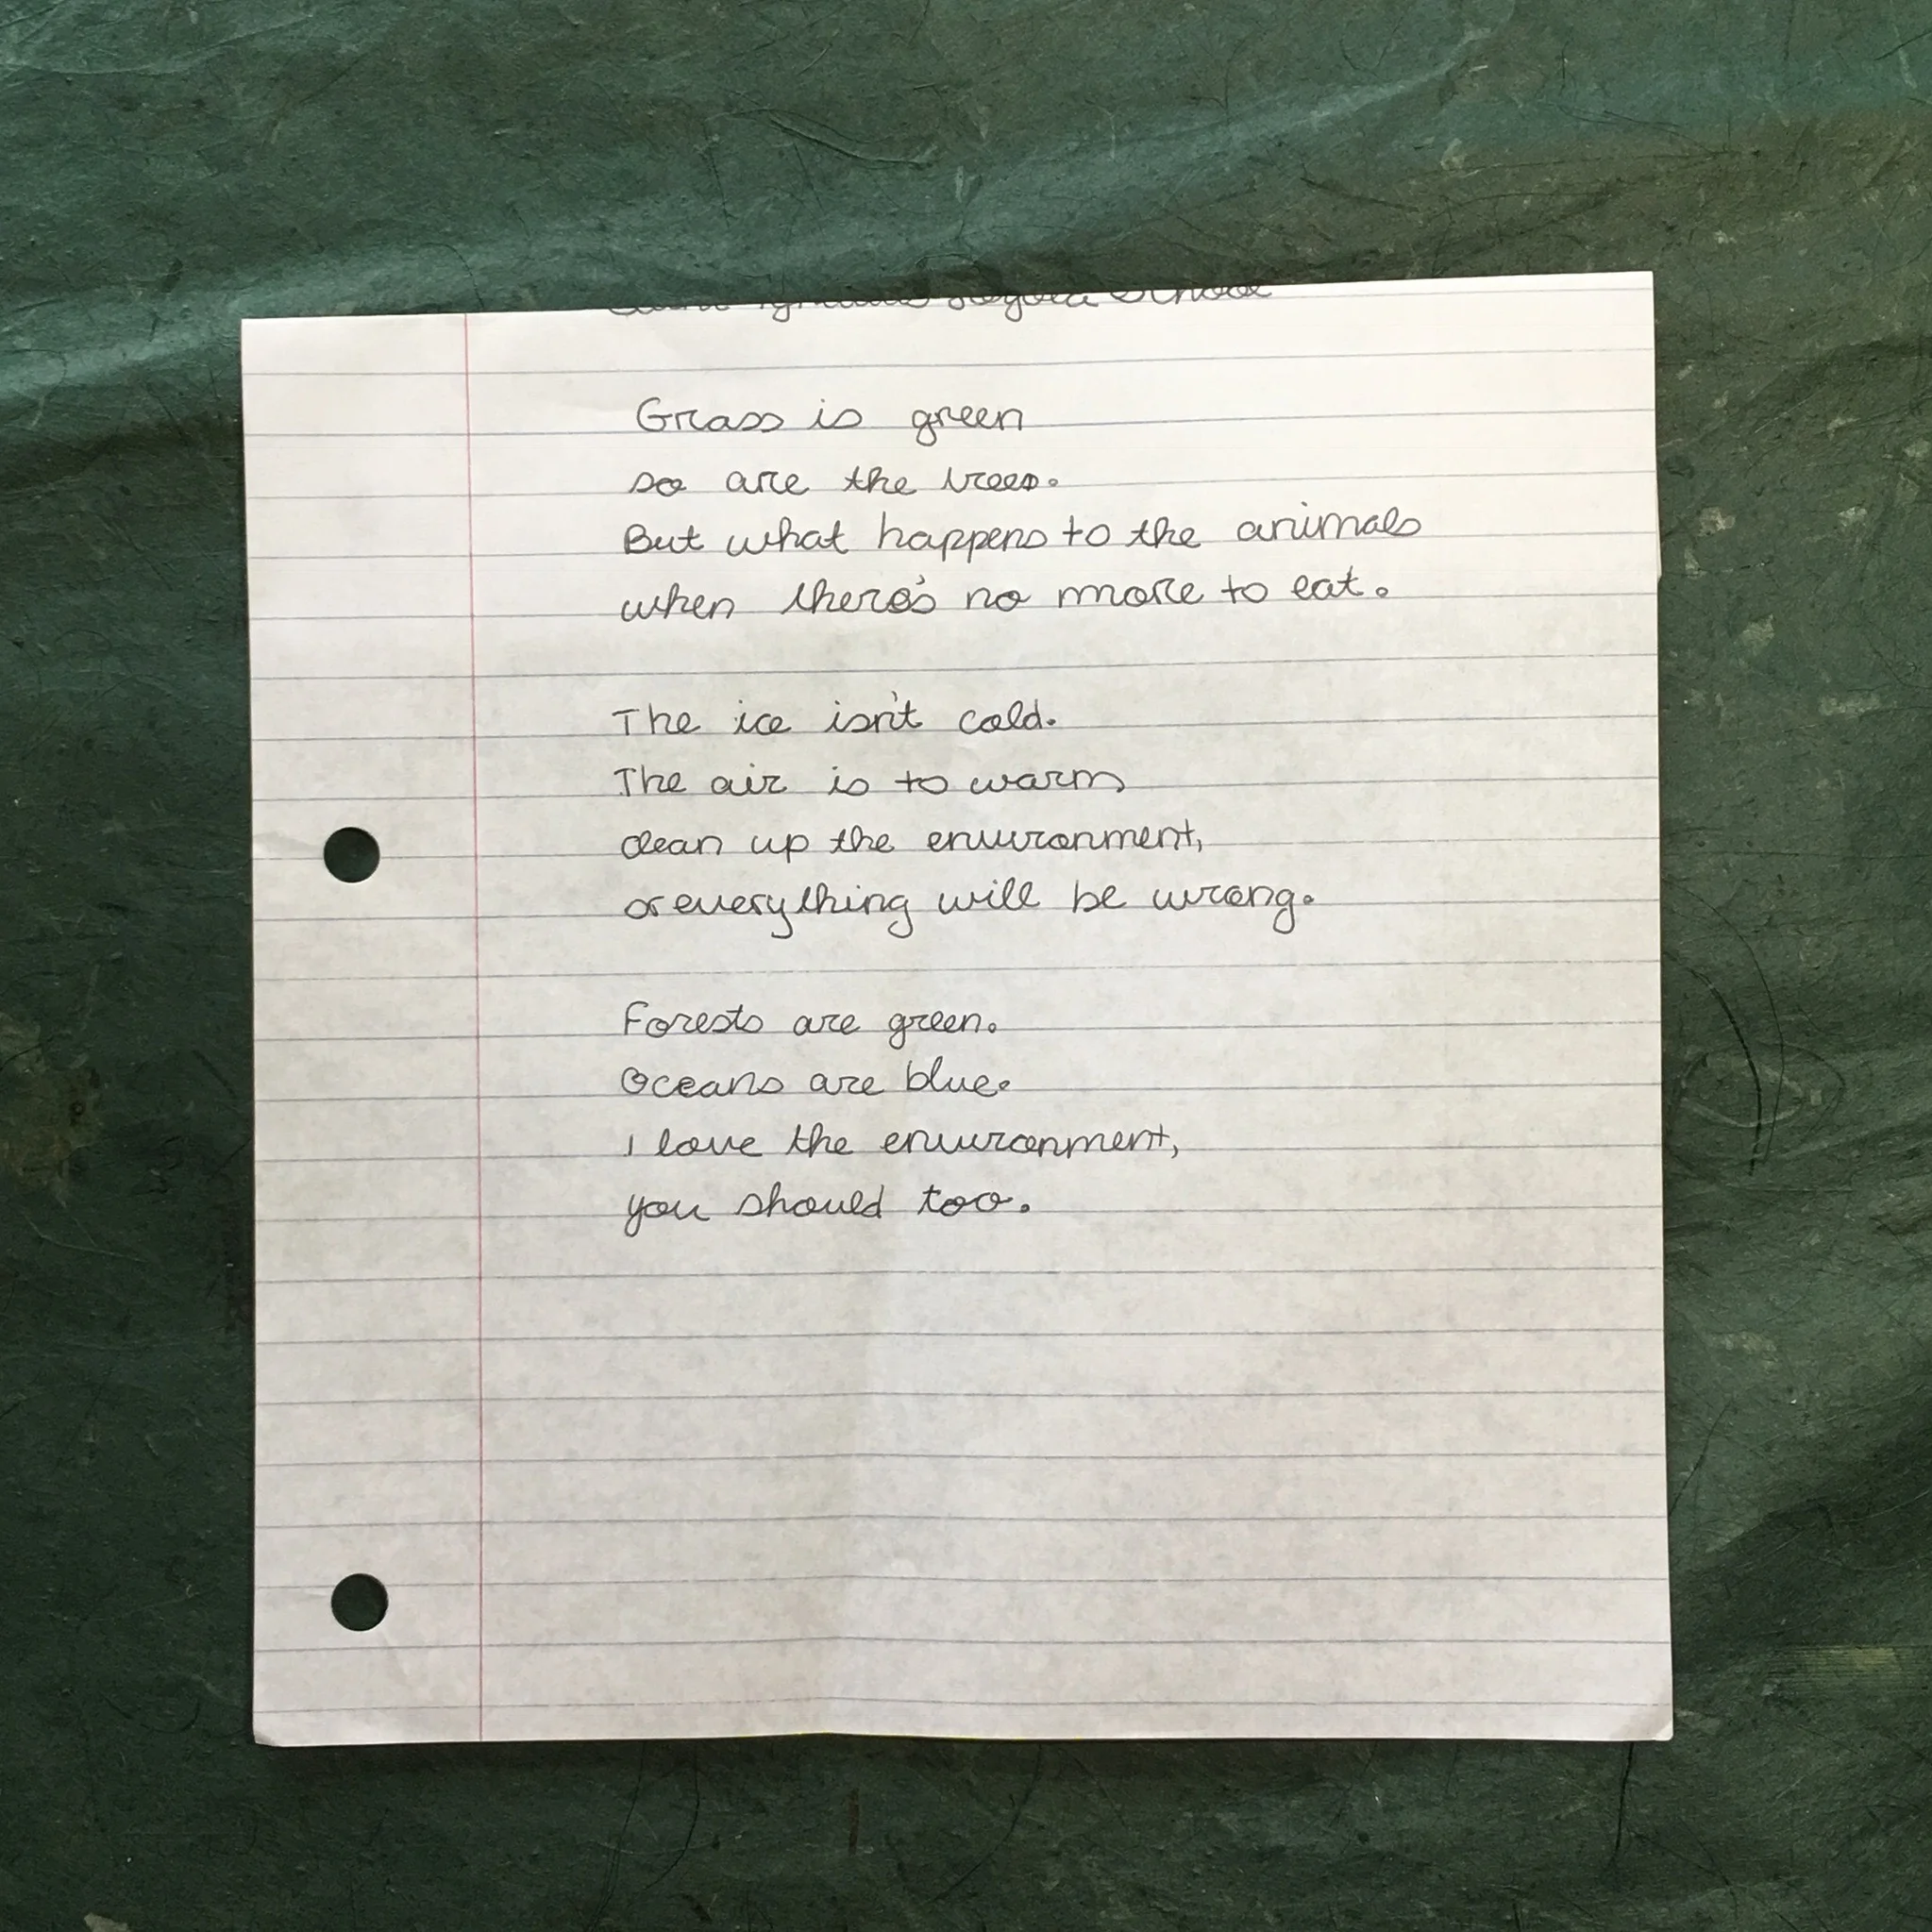 School
Grass is green
so are the trees.
But what happens to the animals
when there's no more to eat.
The ice isn't cold.
The air is to warm
clean up the environment,
or everything will be wrong.
Forests are green.
Oceans are blue.
I love the environment,
you should too.